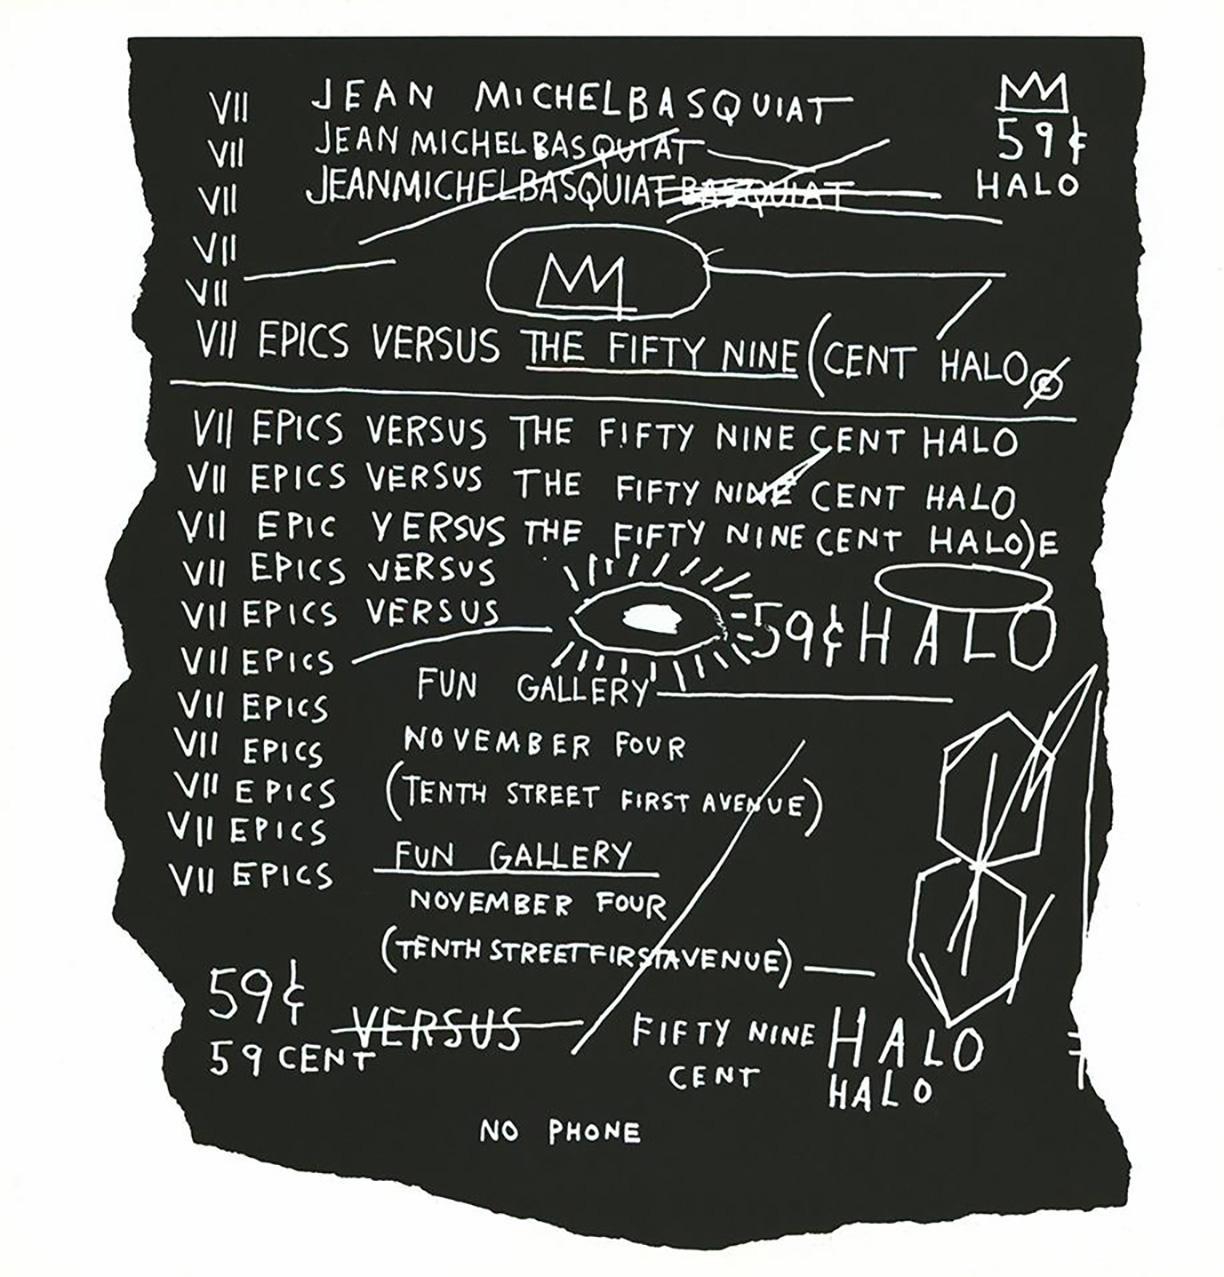 VII JEAN MICHELBASQUIAT
59¢
VII JEAN MICHEL BASQUIAT
HALO
VII JEANMICHELBASQUIAT BASQUIAT
VII
VII
VII EPICS VERSUS THE FIFTY NINE (CENT HALO
VII EPICS VERSUS THE FIFTY NINE CENT HALO
VII EPICS VERSUS THE FIFTY NINE CENT HALO
VII EPIC VERSUS THE FIFTY NINE CENT HALO)E
VII EPICS VERSUS
VII EPICS VERSUS 59¢ HALO
VII EPICS
FUN GALLERY
VII EPICS
NOVEMBER FOUR
VII EPICS
(TENTH STREET FIRST AVENUE)
VII EPICS
VII EPICS
FUN GALLERY
VII EPICS
NOVEMBER FOUR
(TENTH STREETFIRSTAVENUE)
59¢
VERSUS FIFTY NINE HALO
59 CENT
CENT HALO
NO PHONE